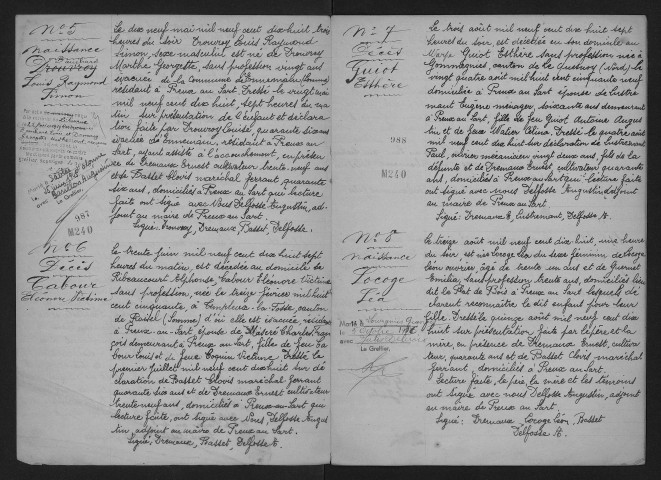 No 5
Naissance
Trouvroy
Louis Raymond
Simon
987
M240
Le dix neuf mai mil neuf cent dix huit, trois
heures du soir Trouvroy Louis Raymond
Simon, sexe masculin est né de Trouvroy
Marthe Georgette, sans profession, vingt ans
évacuée de la commune d'Ennemain (Somme)
résidant à Preux au Sart. Dressé le vingt mai
mil neuf cent dix huit, sept heures du ma
tin, sur présentation de l'enfant et déclara
tion faite par Trouvroy Louise, quarante dix ans
évacuée de Ennemain, résidant à Preux au
Sart, ayant assisté à l'accouchement, en présen
ce de Dremaux Ernest cultivateur trente-neuf ans
et de Basset Clovis maréchal ferrant quarante
dix ans, domiciliés à Preux au Sart qui lecture
faite ont signé avec Nous Delfosse Augustin, ad-
joint au maire de Preux au Sart.
Signé: Trouvroy, Dremaux, Basset, Delfosse.
No 6
Décès
Tabour
Eléonore Victorine
Le trente juin mil neuf cent dix huit sept
heures du matin, est décédée au domicile de
Ribeaucourt Alphonse, Tabour Eléonore Victorine
sans profession, née le treize février mil huit
cent cinquante à
de Rossel (Somme) d'où elle est évacuée, résidant
à Preux-au-Sart, épouse de Maîtré Charles Fran
çois demeurant à Preux au Sart, fille de feu Ta
bour Louis et de feue Coquin Victorine. Dressé le
premier juillet mil neuf cent dix huit sur dé
claration de Basset Clovis maréchal ferrant
quarante dix ans et de Dremaux Ernest cultivateur
trente neuf ans, domiciliés à Preux-au-Sart qui
lecture faite, ont signé avec Nous, Delfosse Augus
tin, adjoint au maire de Preux au Sart.
Signé: Dremaux, Basset, Delfosse A.
No 7
Décès
Guiot
Esthère
988
M240
Le trois août mil neuf cent dix huit sept
heures du soir, est décédée en son domicile au
Marpe Guiot Esthère sans profession née à
Gommegnies, canton de Le Quesnoy (Nord) le
vingt quatre août mil huit cent cinquante neuf
domiciliée à Preux au Sart épouse de Lustre
mant Eugène ménager, soixante ans demeurant
à Preux au Sart, fille de feu Guiot Antoine Augus
tin et de feue Walier Célina. Dressé le quatre août
mil neuf cent dix huit sur déclaration de Lustremant
Paul, ouvrier mécanicien vingt deux ans, fils de la
défunte et de Dremaux Ernest, cultivateur quarante
ans, domiciliés à Preux au Sart qui lecture faite
ont signé avec nous Delfosse Augustin, adjoint
au maire de Preux au Sart.
Signé: Dremaux E, Lustremant, Delfosse A.
No 8
Naissance
Locoge
Léa
Marié à
le
avec
Le Greffier,
Le treize août mil neuf cent dix huit, une heure
du soir, est née Locoge Léa du sexe féminin de Locoge
Léon ouvrier, âgé de trente un ans et de Quernet
Emilia, sans profession trente ans, domiciliés lieu
dit de Plat de Bois à Preux au Sart lesquels dé
clarent reconnaître le dit enfant pour leur
fille. Dressé le quinze août mil neuf cent dix
huit sur présentation faite par le père et la
mère, en présence de Dremaux Ernest, cultiva
teur, quarante ans et de Basset Clovis maréchal
ferrant domiciliés à Preux au Sart.
Lecture faite, le père, la mère et les témoins
ont signé avec nous Delfosse Augustin, adjoint
au maire de Preux au Sart.
Signé: Dremaux Locoge Léon, Basset
Delfosse A.